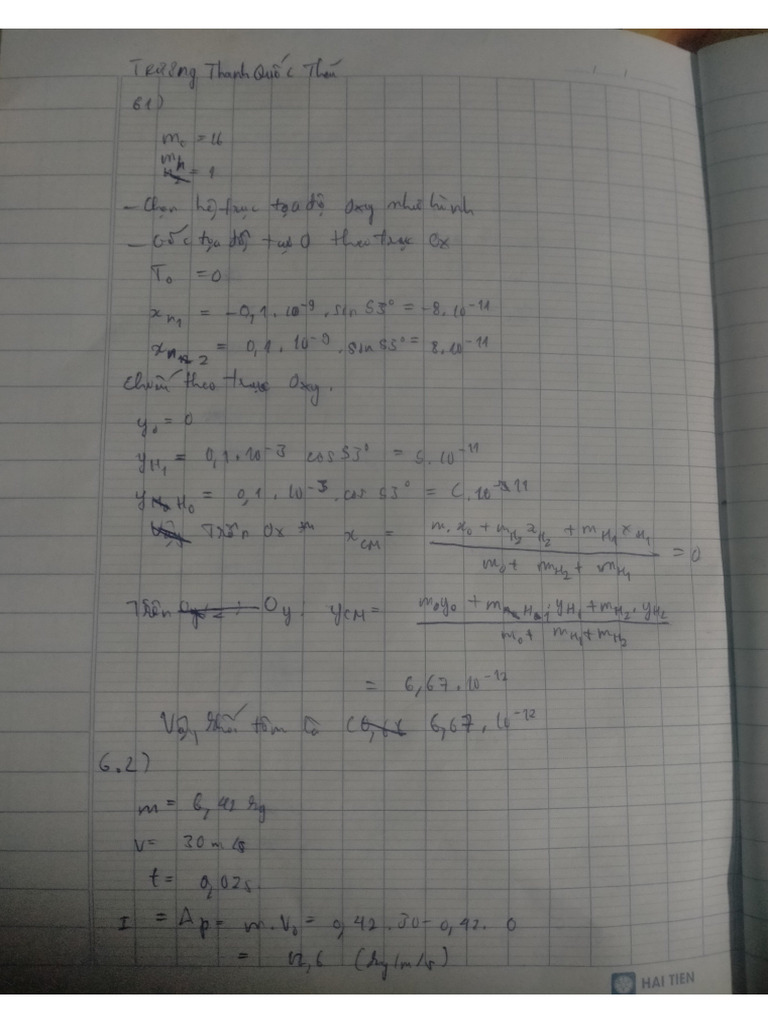 Trương Thanh Quốc
61)
m₀ = 16
mH = 1
- Chọn hệ trục tọa độ Oxy như hình
- Gốc tọa độ tại O theo trục Ox
= 0
= -0,1.10⁻⁹.sin 53° = -8.10⁻¹¹
= 0,1.10⁻⁹.sin 53° = 8.10⁻¹¹
theo trục Oxy.
y₀ = 0
yH₁ = 0,1.10⁻³ cos 53° =
= 0,1.10⁻³.cos 53° =
Trên Ox xCM = (m.x₀ + mH₂xH₂ + mH₁xH₁) / (m₀ + mH₂ + mH₁) = 0
Trên Oy: yCM = (m₀y₀ + mH₁.yH₁ + mH₂.yH₂) / (m₀ + mH₁ + mH₂)
= 6,67.10⁻¹²
Vậy khối tâm là 6,67.10⁻¹²
6.2)
m = 0,42 kg
v = 30 m/s
t = 0,02s.
I = Δp = m.V₀ = 0,42.30 - 0,42.0
= 12,6 (kg/m/s)
HAI TIEN